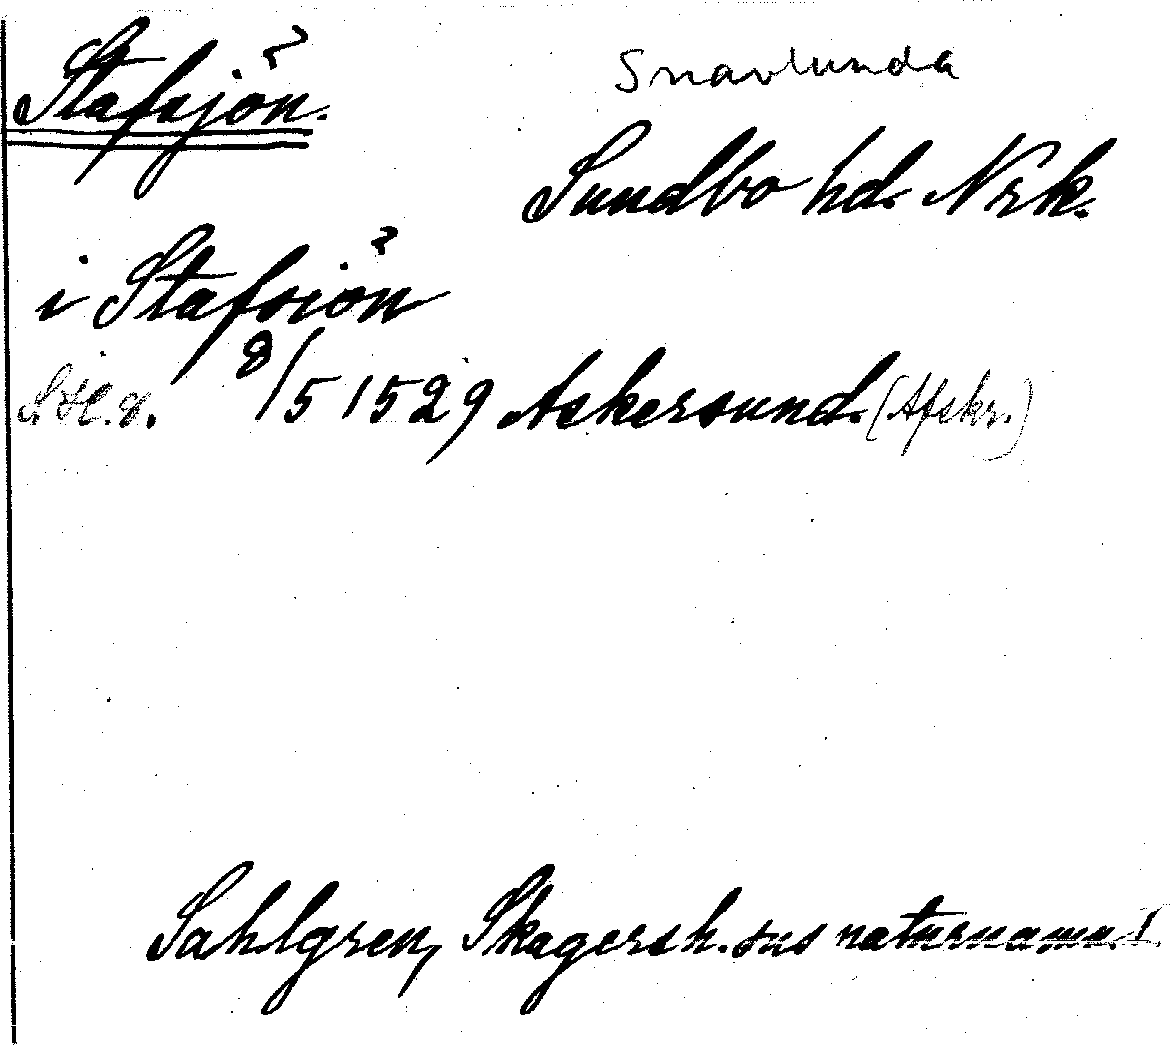 Stafsjön.
Snavlunda
Sundbo hd. Nrk.
i Stafsiön
8/5 1529 Askersund. (Afskr.)
Sahlgren, Skagersh. sns naturnamn.